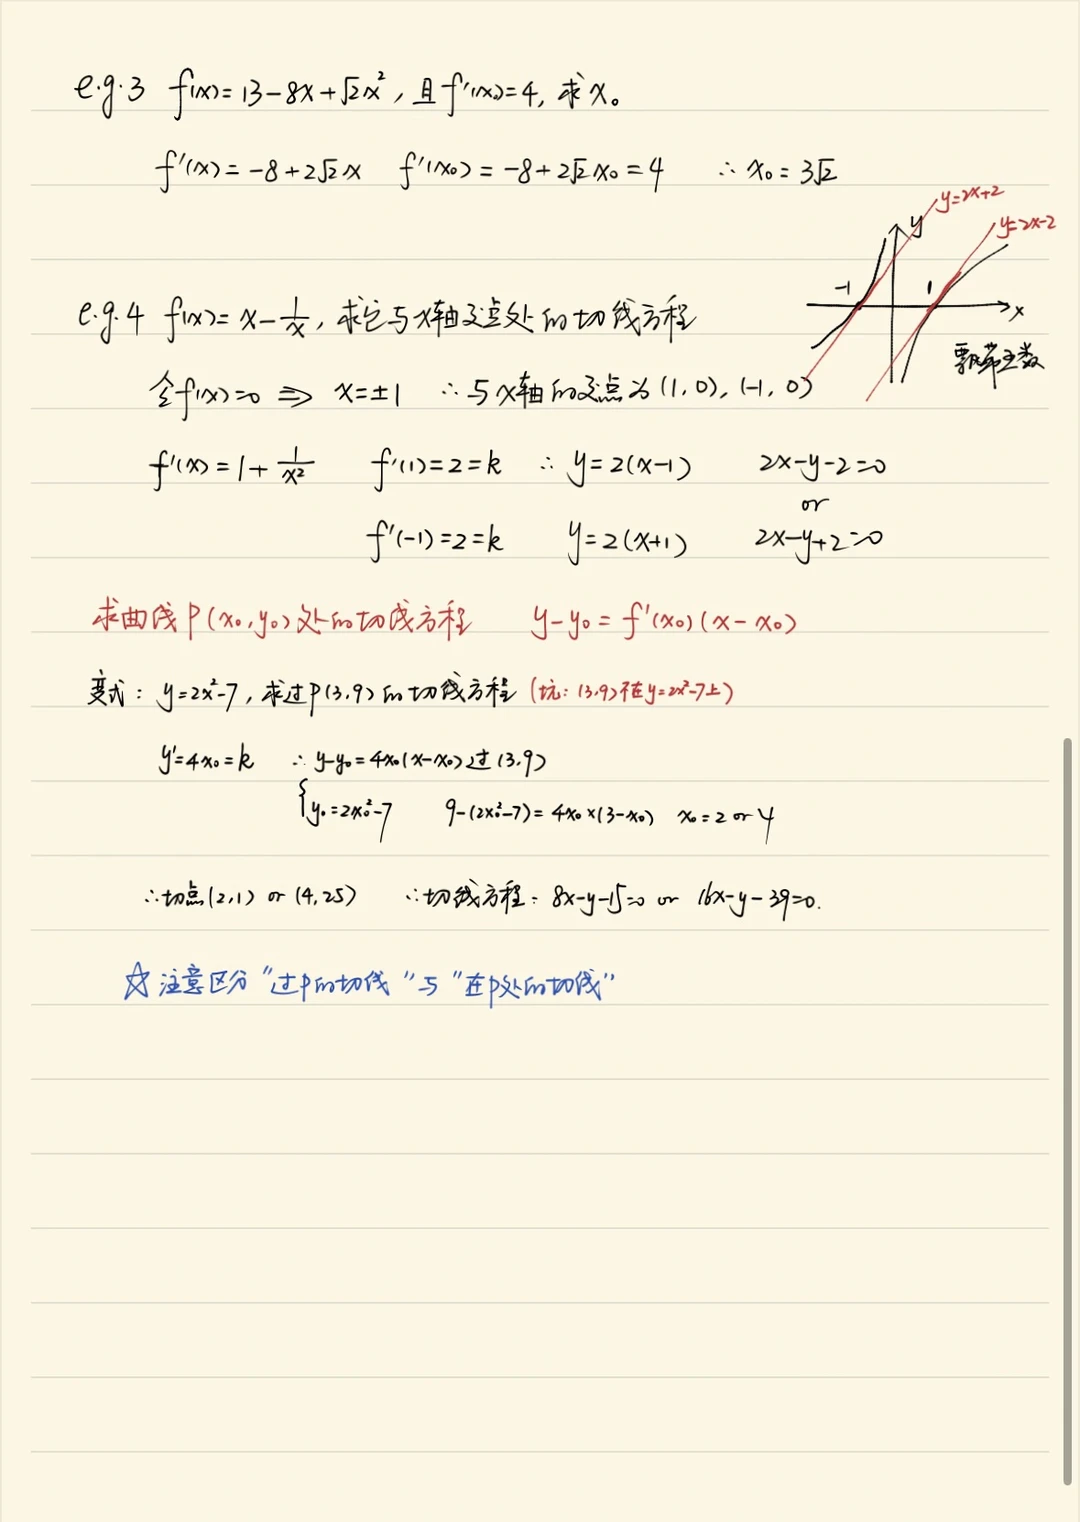 e.g.3 f(x)=13-8x+√2x², 且f'(x₀)=4, 求x。
f'(x)=-8+2√2x f'(x₀)=-8+2√2x₀=4 ∴x₀=3√2
y=2x+2
y
y=2x-2
-1 1
x
e.g.4 f(x)=x-1/x, 求它与x轴交点处的切线方程
飘带函数
令f(x)=0 ⇒ x=±1 ∴与x轴的交点为(1,0),(-1,0)
f'(x)=1+1/x² f'(1)=2=k ∴y=2(x-1) 2x-y-2=0
or
f'(-1)=2=k y=2(x+1) 2x-y+2=0
求曲线P(x₀,y₀)处的切线方程 y-y₀=f'(x₀)(x-x₀)
变式: y=2x²-7, 求过P(3,9)的切线方程 (坑: (3,9)不在y=2x²-7上)
y'=4x₀=k ∴y-y₀=4x₀(x-x₀)过(3,9)
{y₀=2x₀²-7 9-(2x₀²-7)=4x₀×(3-x₀) x₀=2 or 4
∴切点(2,1) or (4,25) ∴切线方程: 8x-y-15=0 or 16x-y-39=0.
☆注意区分“过P的切线”与“在P处的切线”